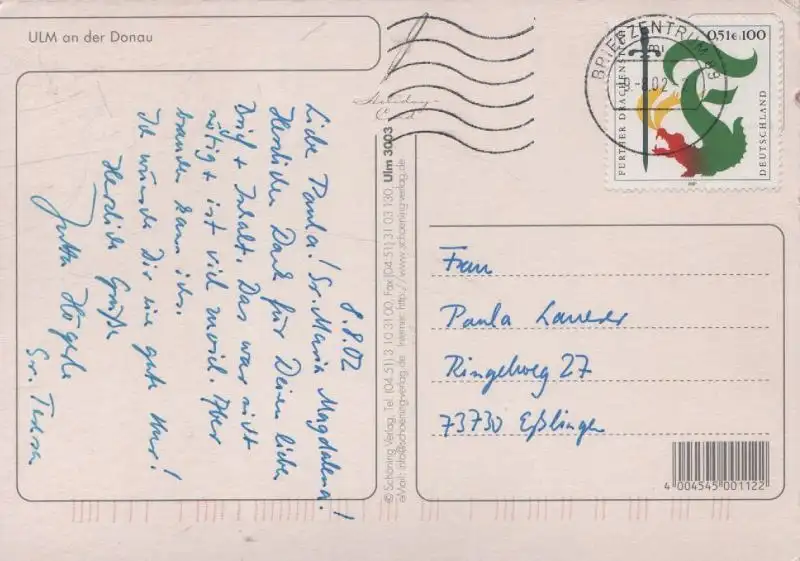 ULM an der Donau
8.8.02
Liebe Paula! Sr. Maria Magdalena!
Herzlichen Dank für Deinen lieben
Brief + Inhalt. Das war nicht
nötig + ist viel zuviel. Aber
brauchen kann ichs.
Ich wünsche Dir eine gute Kur!
Herzliche Grüße
Jutta
Sr. Teresa
Holiday-
Card
© Schöning Verlag, Tel. (04 51) 3 10 3 100, Fax (04 51) 31 03 130, Ulm 3003
eMail: info@schoening-verlag.de Internet: http://www.schoening-verlag.de
BRIEFZENTRUM 89
-8.02
0,51€ 100
FURTHER DRACHENSTICH
DEUTSCHLAND
Frau
Paula
Ringelweg 27
73730 Eßlingen
4 004545 001122